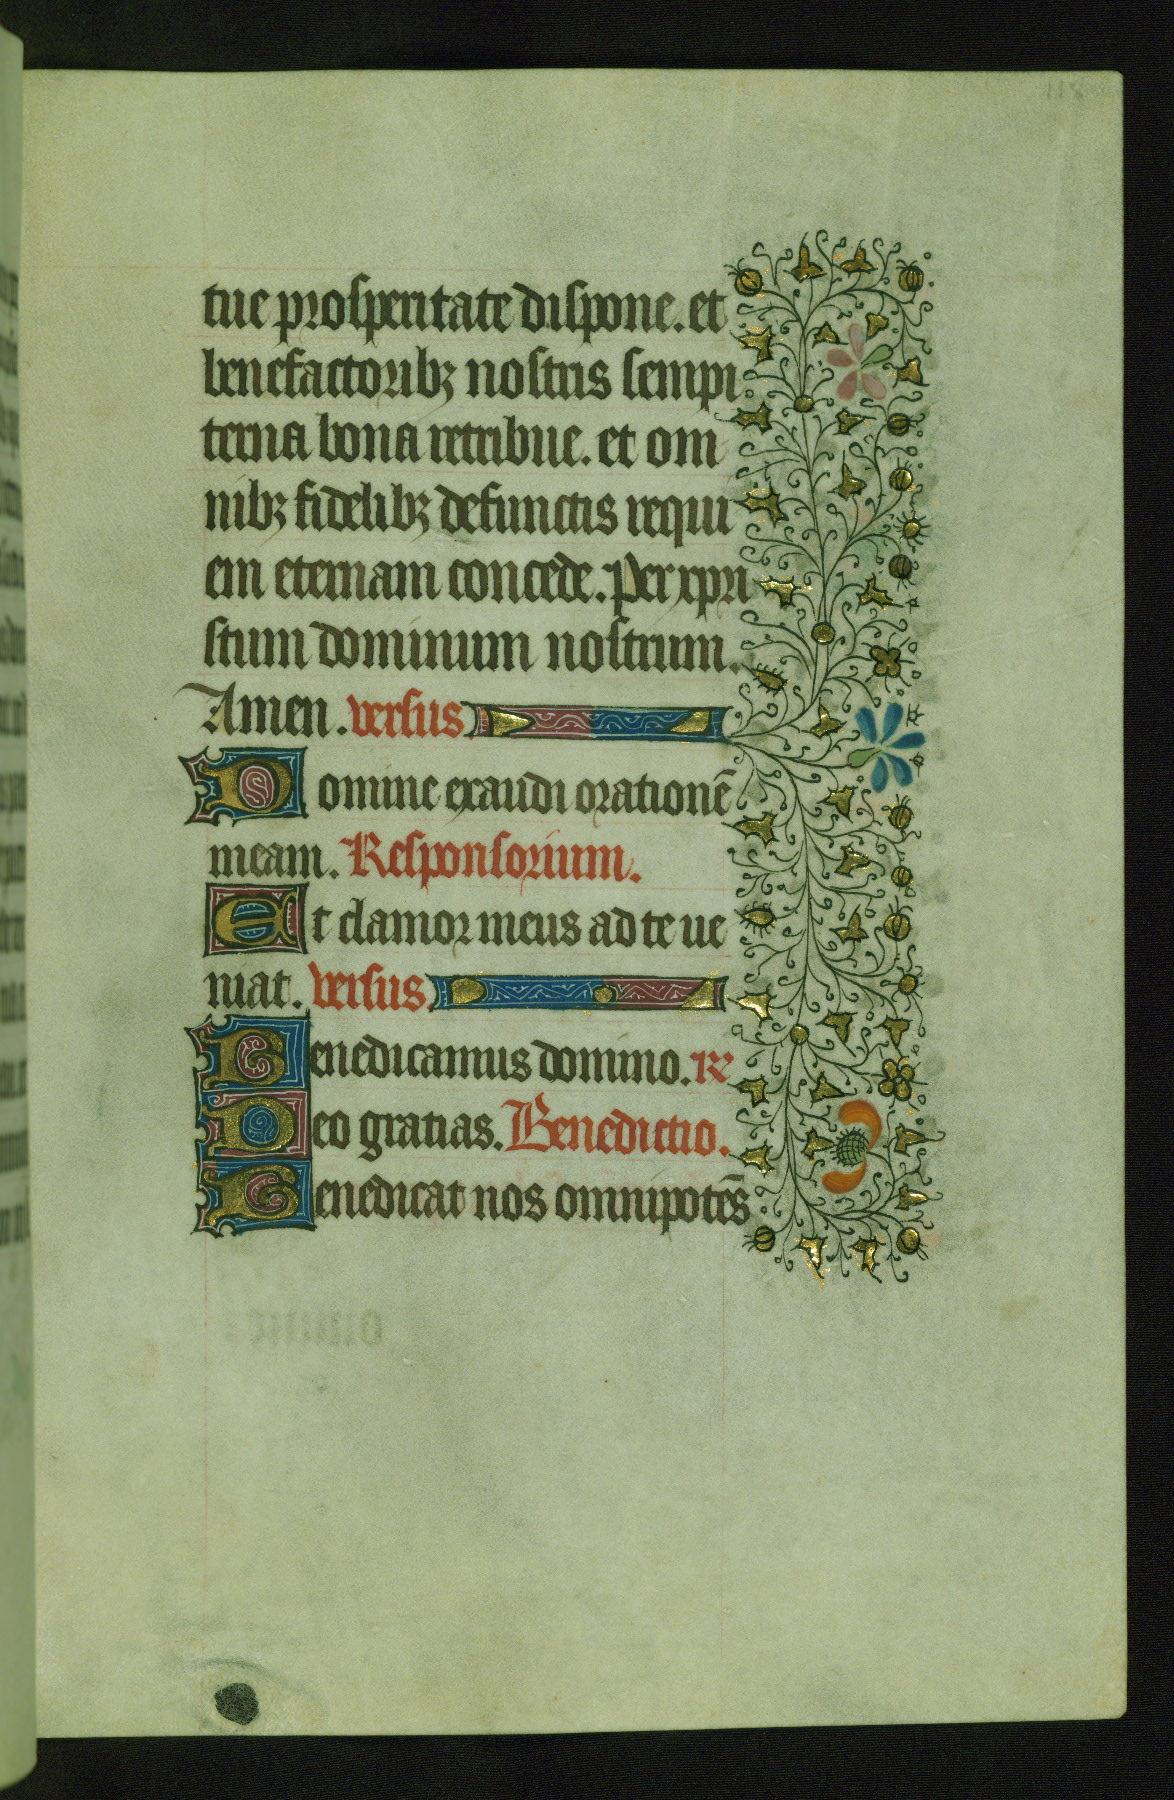 tue prosperitate dispone. et
benefactoribꝫ nostris sempi
terna bona retribue. et om
nibꝫ fidelibꝫ defunctis requi
em eternam concede. Per xpri
stum dominum nostrum.
Amen. versus
Domine exaudi orationē
meam. Responsorium.
Et clamor meus ad te ue
niat. versus
Benedicamus domino. rx
Deo gratias. Benedictio.
Benedicat nos omnipotēs